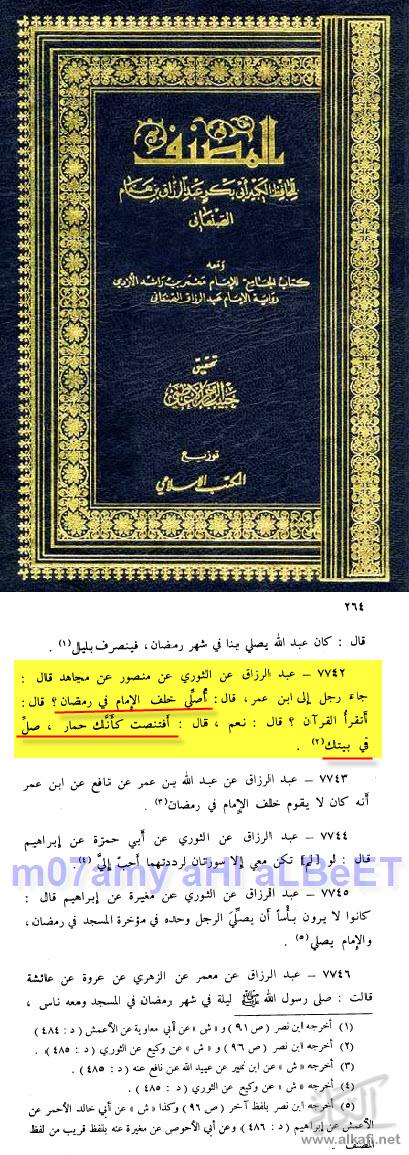 المصنف
للحافظ الكبير أبي بكر عبد الرزاق بن همام
الصنعاني
ومعه
كتاب الجامع للإمام معمر بن راشد الأزدي
رواية الإمام عبد الرزاق الصنعاني
تحقيق
حبيب الرحمن الأعظمي
توزيع
المكتب الإسلامي
٢٦٤
قال : كان عبد الله يصلي بنا في شهر رمضان ، فينصرف بليل (١) .
٧٧٤٢ – عبد الرزاق عن الثوري عن منصور عن مجاهد قال :
جاء رجل إلى ابن عمر ، قال : أصلّي خلف الإمام في رمضان ؟ قال :
أتقرأ القرآن ؟ قال : نعم ، قال : أفتنصت كأنّك حمار ، صلّ
في بيتك (٢) .
٧٧٤٣ – عبد الرزاق عن عبد الله بن عمر عن نافع عن ابن عمر
أنه كان لا يقوم خلف الإمام في رمضان (٣) .
٧٧٤٤ – عبد الرزاق عن الثوري عن أبي حمزة عن إبراهيم
قال : لو [لم] تكن معي إلا سورتان لرددتهما أحبّ إليّ (٤)
m07amy aHl aLBeET
٧٧٤٥ – عبد الرزاق عن الثوري عن مغيرة عن إبراهيم قال :
كانوا لا يرون بأساً أن يصلّيَ الرجل وحده في مؤخرة المسجد في رمضان ،
والإمام يصلي (٥) .
٧٧٤٦ – عبد الرزاق عن معمر عن الزهري عن عروة عن عائشة
قالت : صلى رسول الله ﷺ ليلة في شهر رمضان في المسجد ومعه ناس ،
(١) أخرجه ابن نصر ( ص ٩١ ) و « ش » عن أبي معاوية عن الأعمش ( د : ٤٨٤ )
(٢) أخرجه ابن نصر ( ص ٩٦ ) و « ش » عن وكيع عن الثوري ( د : ٤٨٥ ) .
(٣) أخرجه « ش » عن ابن نمير عن عبيد الله عن نافع عنه ( د : ٤٨٥ ) .
(٤) أخرجه « ش » عن وكيع عن الثوري ( د : ٤٨٥ ) .
(٥) أخرجه ابن نصر بلفظ آخر ( ص ٩٦ ) وكذا « ش » عن أبي خالد الأحمر عن
الأعمش عن إبراهيم ( د : ٤٨٦ ) وعن أبي الأحوص عن مغيرة عنه بلفظ قريب من لفظ
المصنف .
www.alkafi.net